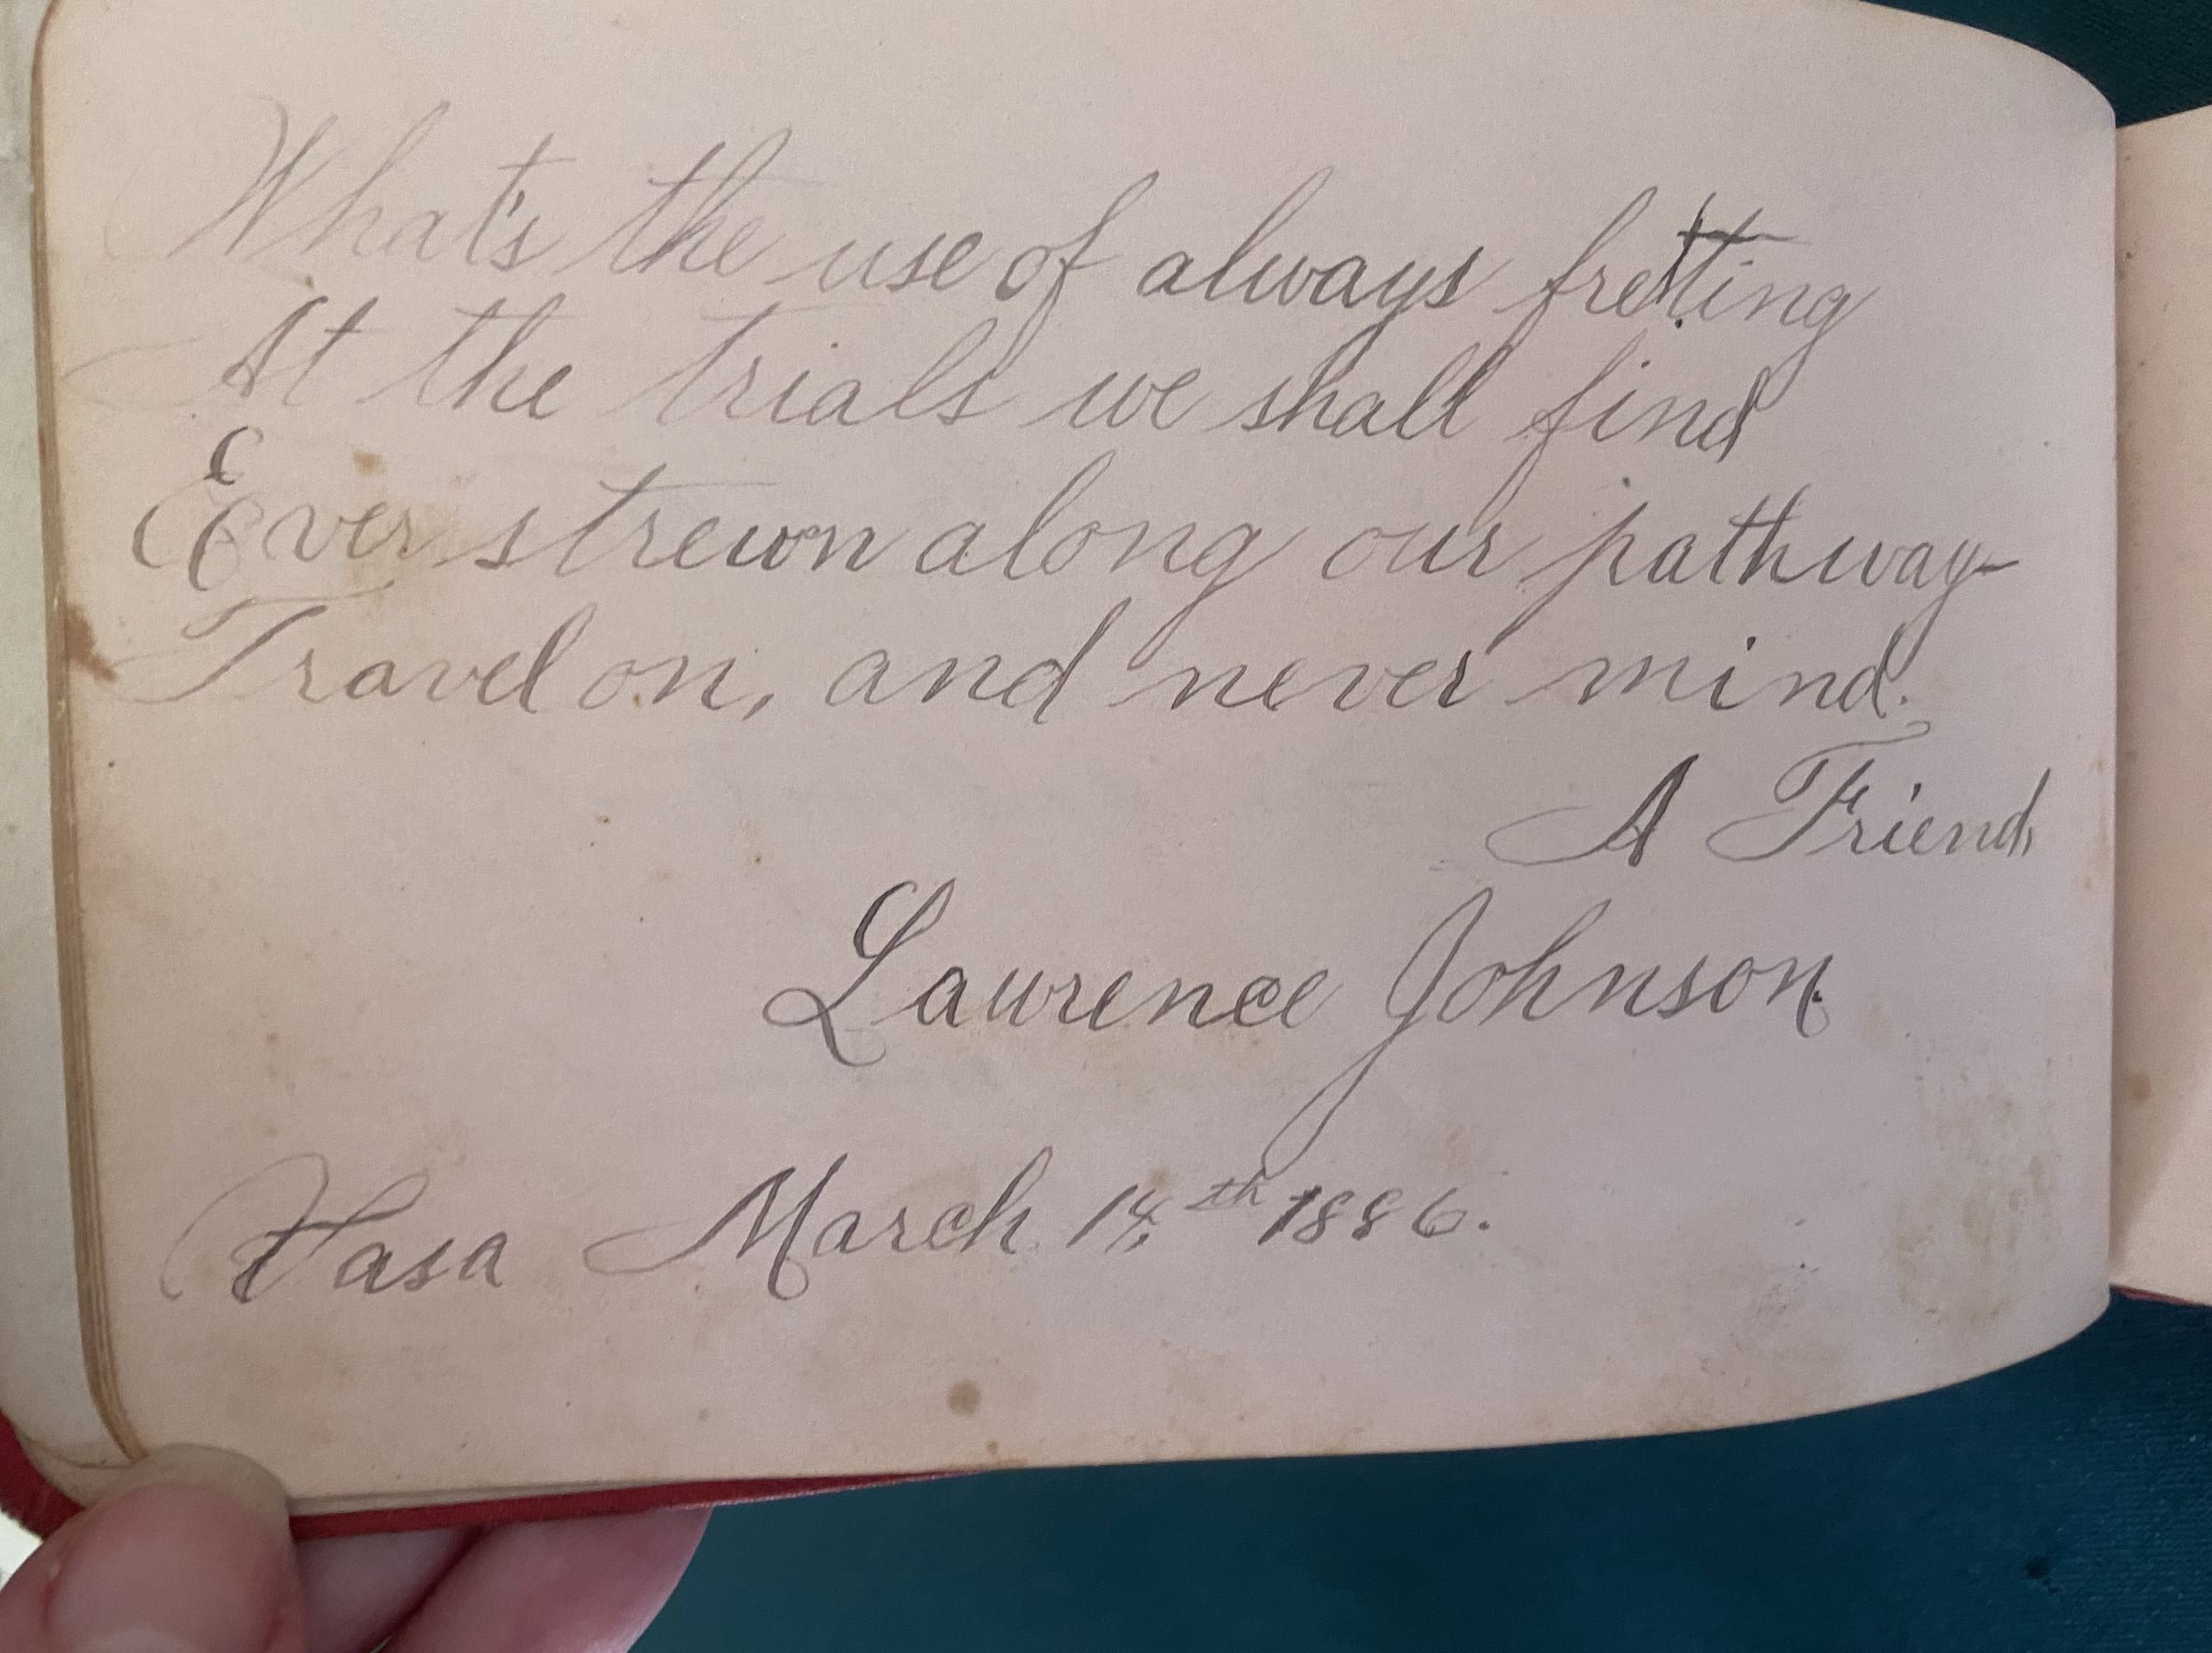 What's the use of always fretting
At the trials we shall find
Ever strewn along our pathway
Travel on, and never mind.
A Friend
Lawrence Johnson.
Vasa March 14th 1886.